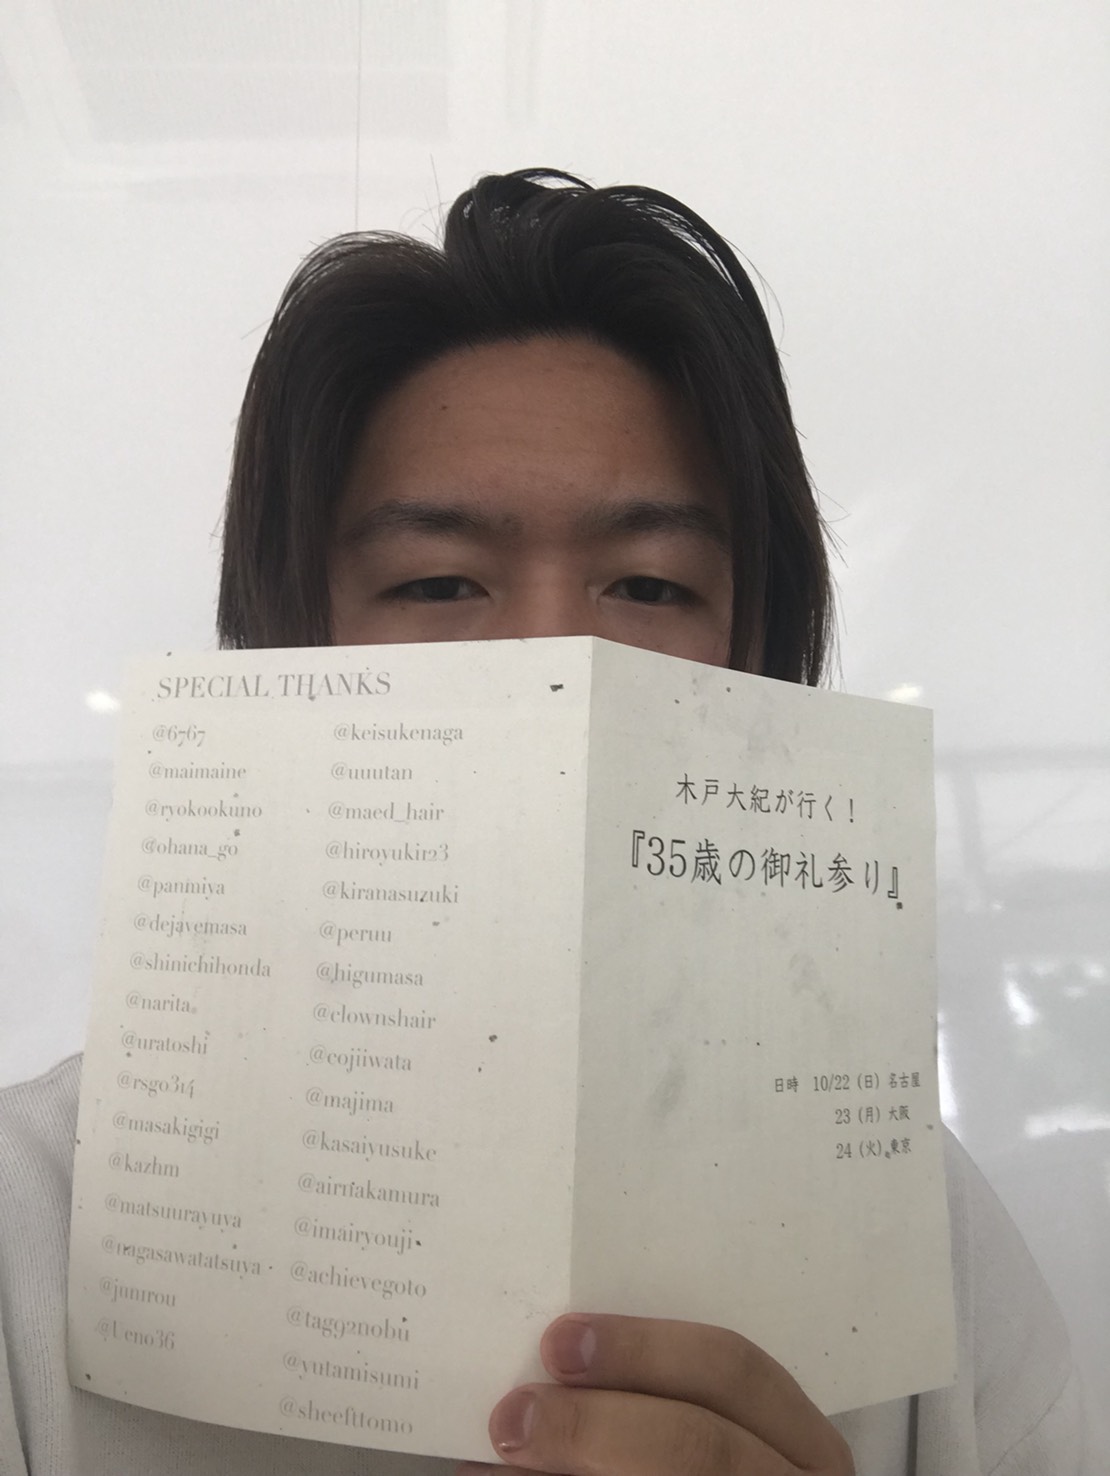 SPECIAL THANKS
@6767
@maimaine
@ryokookuno
@ohana_go
@panmiya
@dejavemasa
@shinichihonda
@narita
@uratoshi
@rsgo314
@masakigigi
@kazhm
@matsuurayuya
@nagasawatatsuya
@junirou
@Ueno36
@keisukenaga
@uuutan
@maed_hair
@hiroyuki123
@kiranasuzuki
@peruu
@higumasa
@clownshair
@cojiiwata
@majima
@kasaiyusuke
@airnakamura
@imairyouji
@achievegoto
@tag92nobu
@yutamisumi
@sheefttomo
木戸大紀が行く!
『35歳の御礼参り』
日時 10/22 (日) 名古屋
23 (月) 大阪
24 (火) 東京